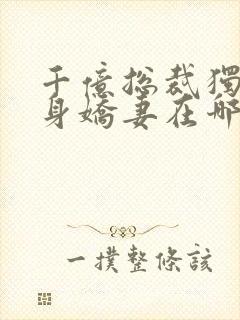 千億總裁獨
身嬌妻在哪
一撲整條該